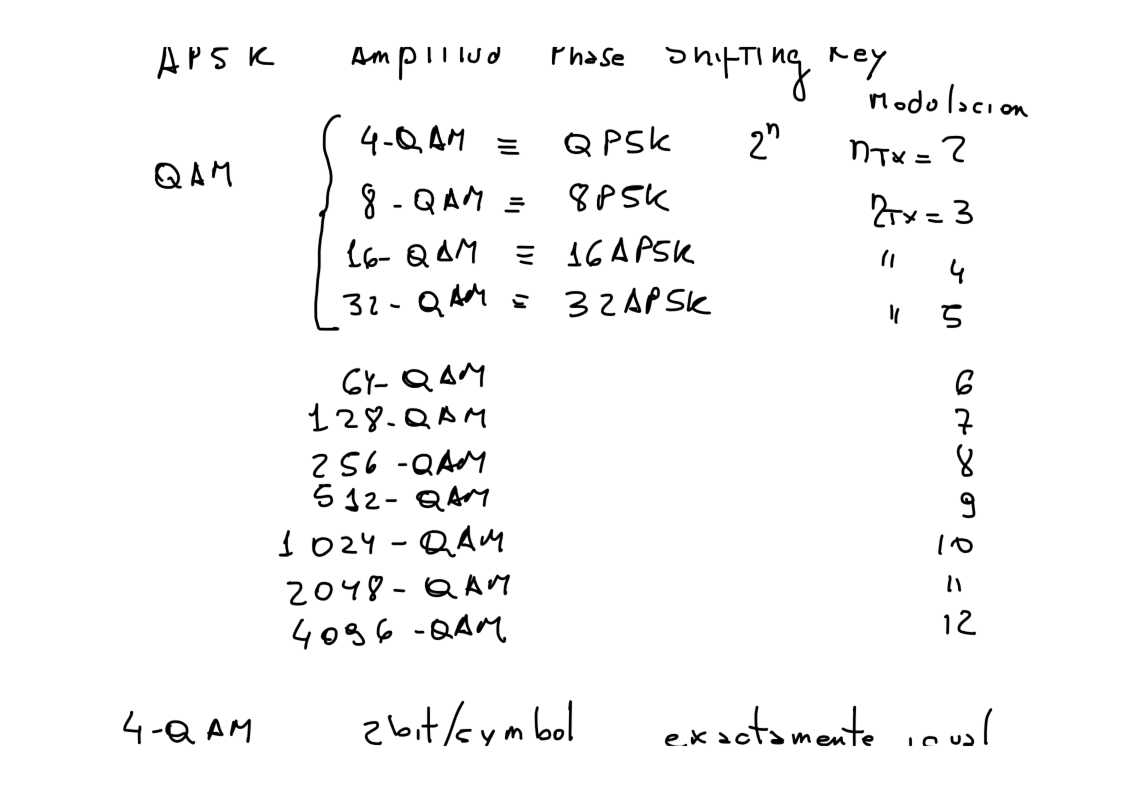 APSK Amplitud Phase Shifting Key
Modulacion
4-QAM ≡ QPSK 2ⁿ nTx = 2
QAM
8-QAM ≡ 8PSK nTx = 3
16-QAM ≡ 16APSK " 4
32-QAM ≡ 32APSK " 5
64-QAM 6
128-QAM 7
256-QAM 8
512-QAM 9
1024-QAM 10
2048-QAM 11
4096-QAM 12
4-QAM 2bit/symbol exactamente igual